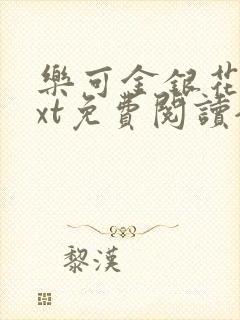 樂可金銀花
xt免費閱讀
黎漢